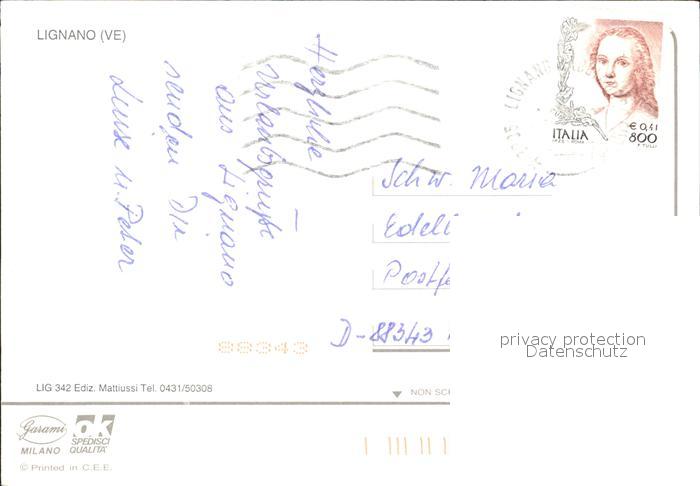 LIGNANO (VE)
Herzliche
Urlaubsgrüße
aus Lignano
senden Dir
Luise u. Peter
ITALIA
€ 0,41
800
Schw. Maria
Edel
Postf
D-88343
88343
privacy protection
Datenschutz
LIG 342 Ediz. Mattiussi Tel. 0431/50308
NON SC
Garami
MILANO
ok
SPEDISCI
QUALITA'
© Printed in C.E.E.